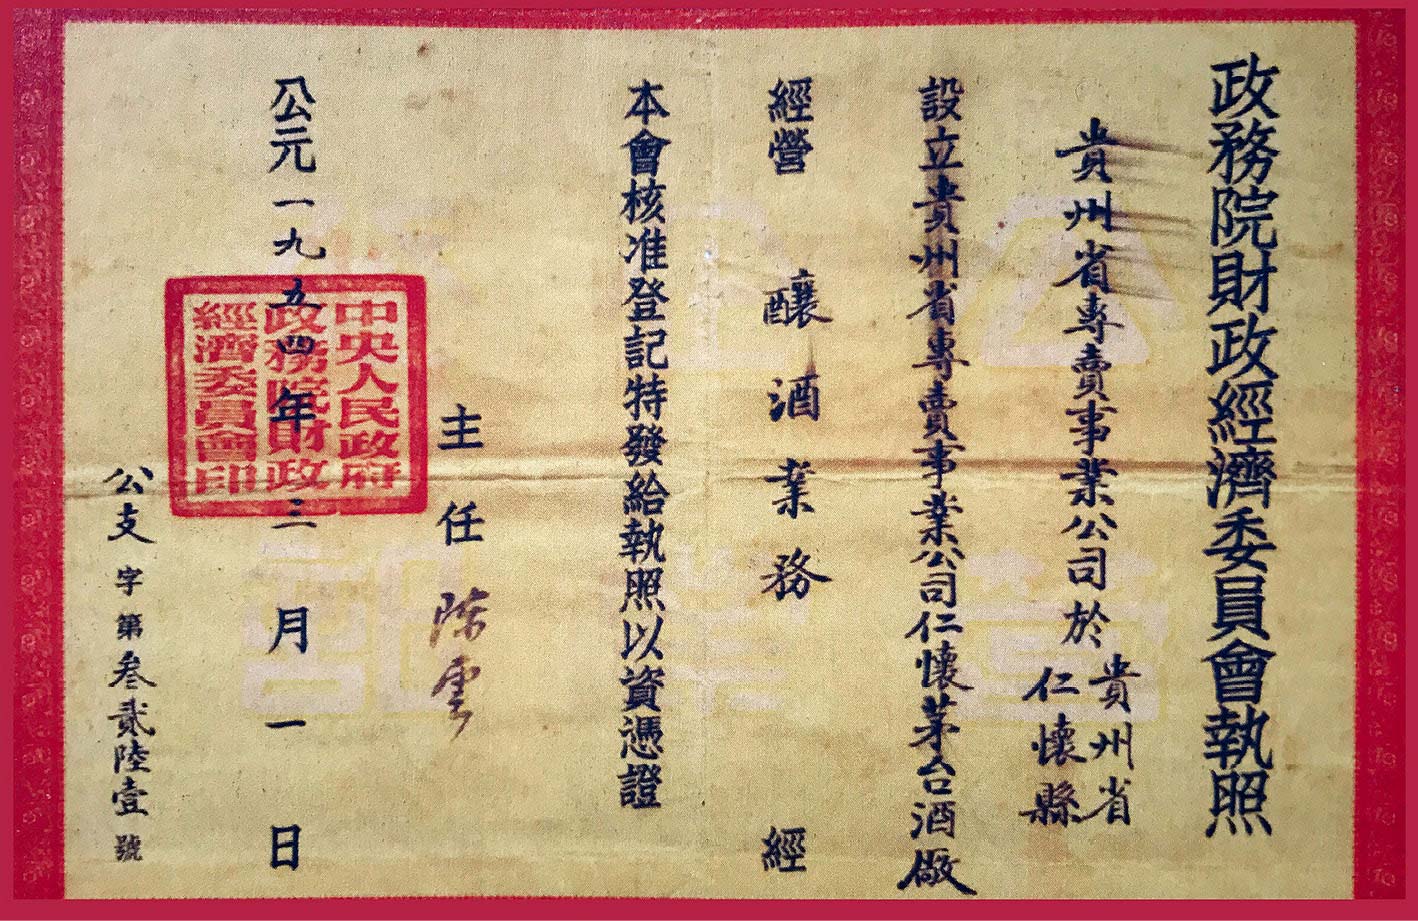 政務院財政經濟委員會執照
貴州省專賣事業公司於貴州省仁懷縣
設立貴州省專賣事業公司仁懷茅台酒厰
經營 釀酒業務 經
本會核准登記特發給執照以資憑證
主任 陳雲
公元一九五四年三月一日
中央人民政府
政務院財政
經濟委員會印
公支字第叁貳陸壹號